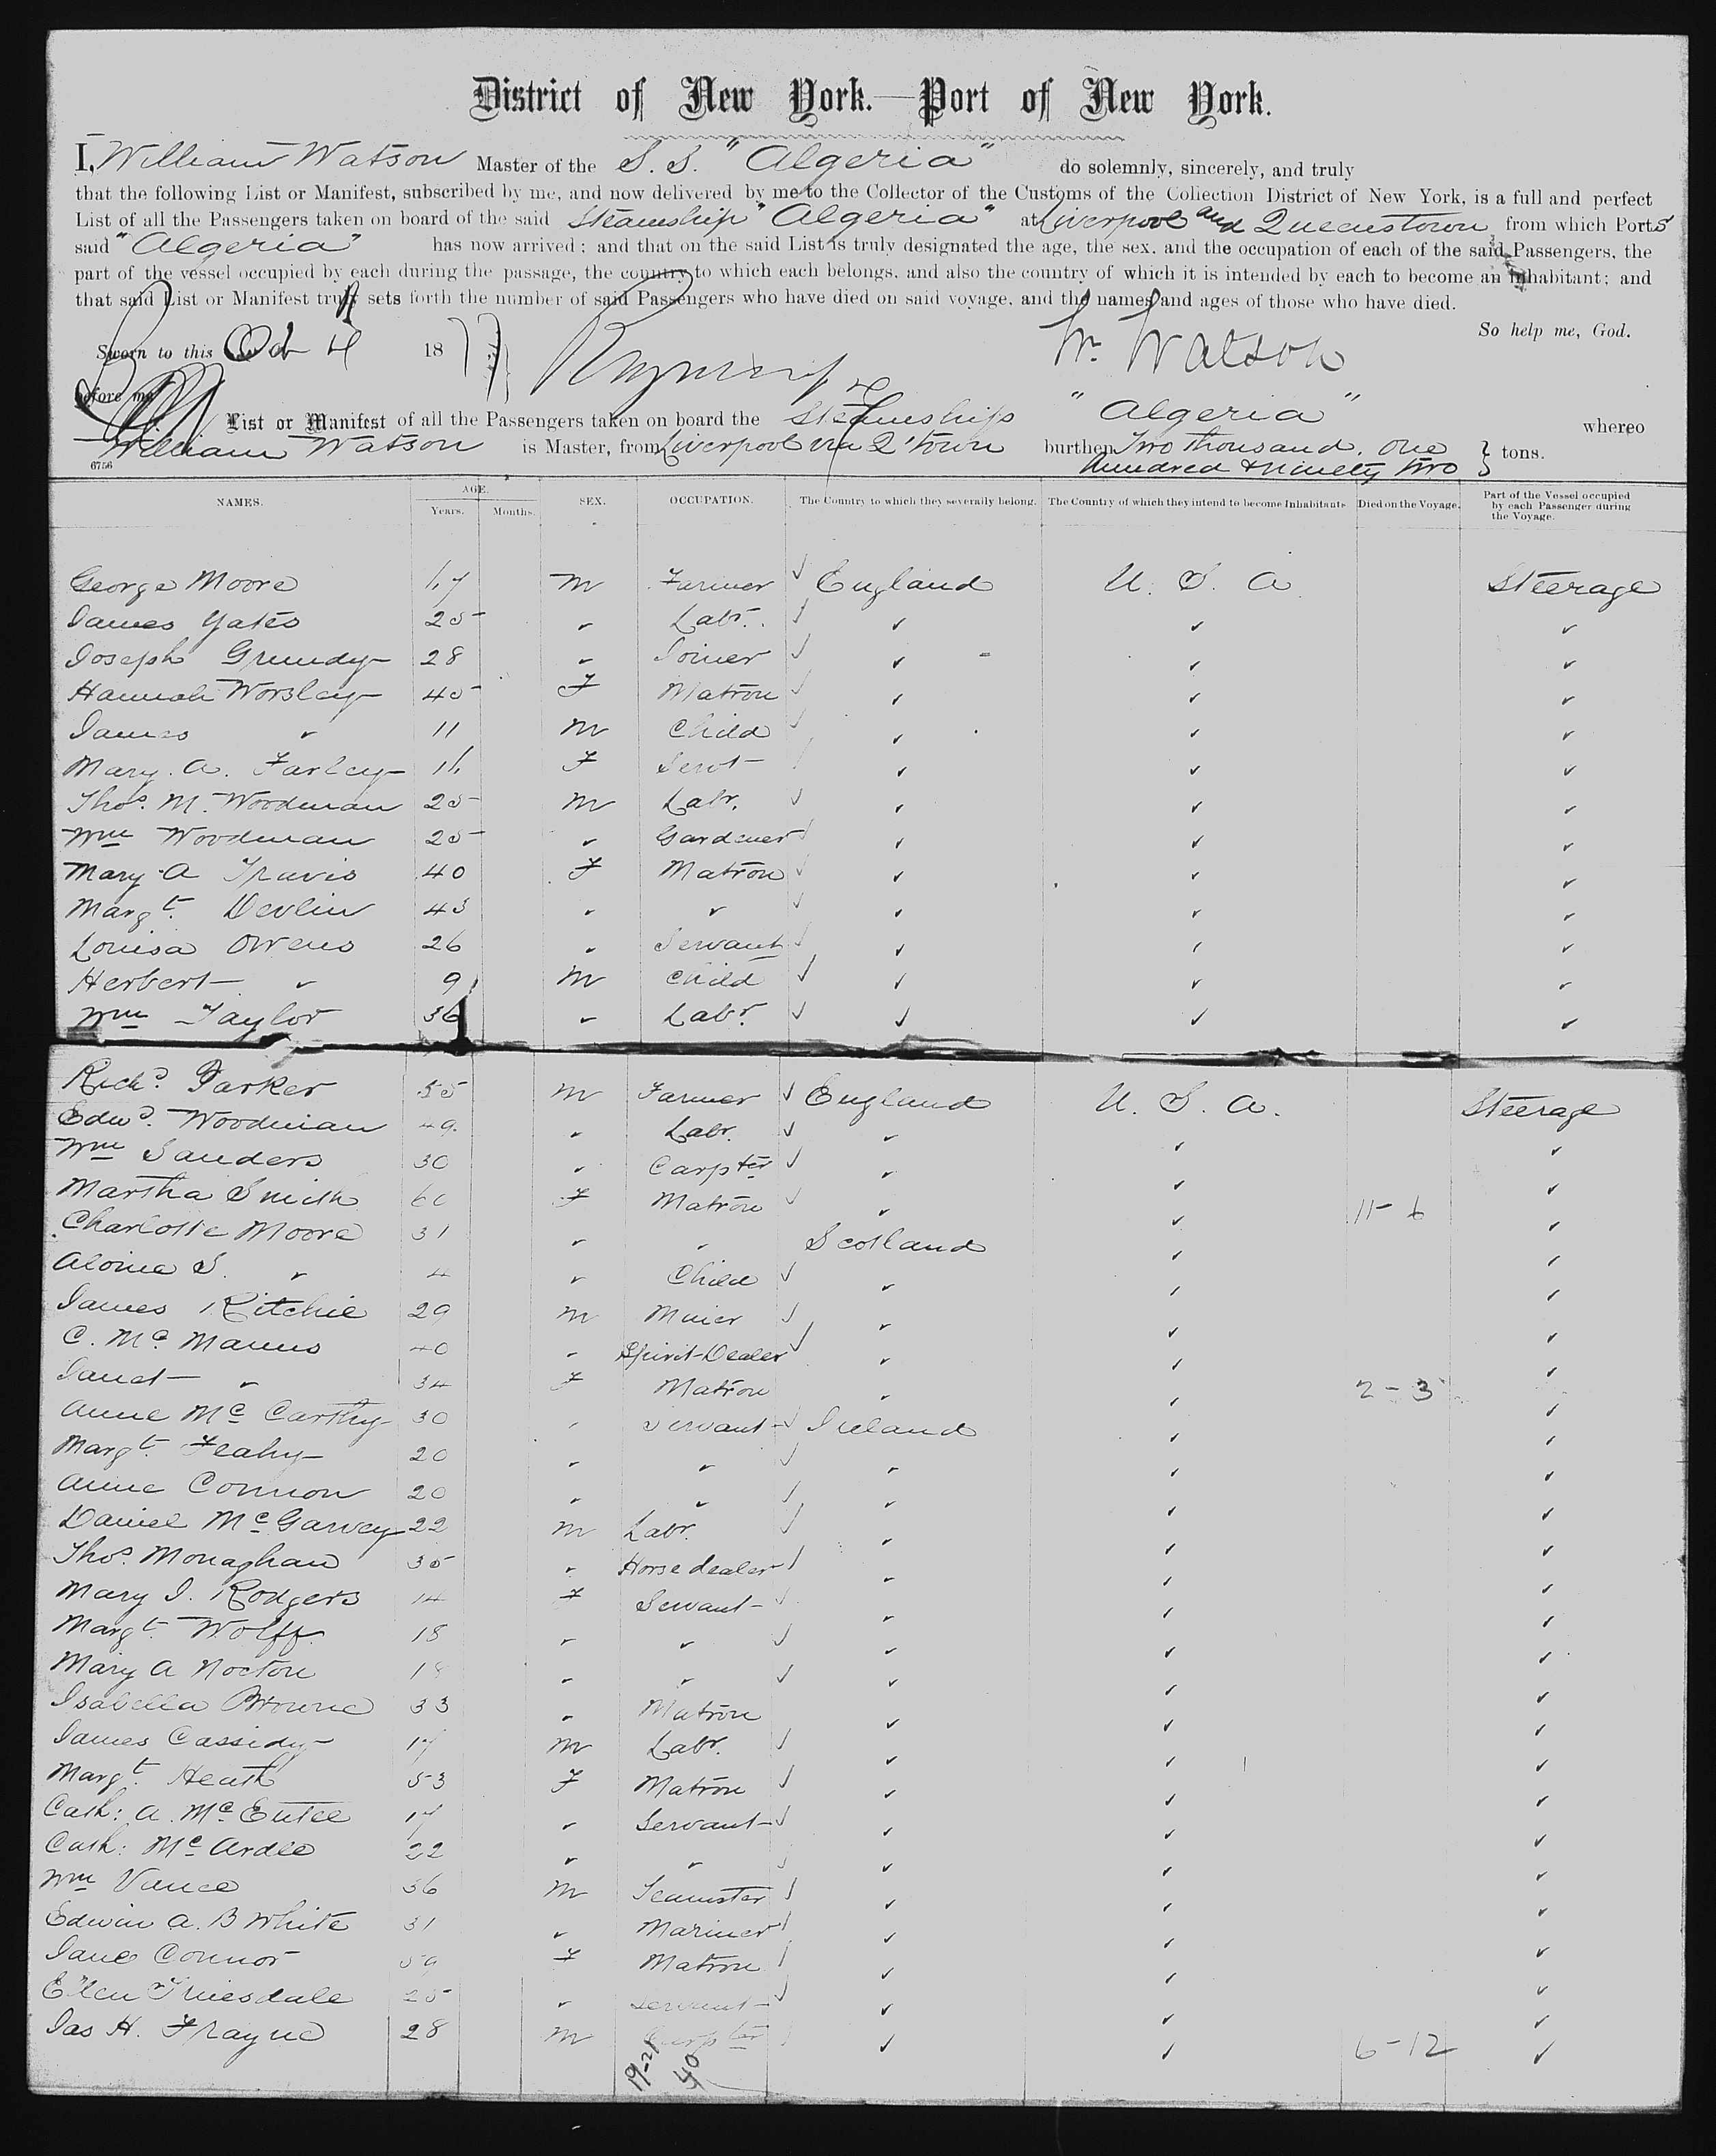 District of New York.—Port of New York.
I, William Watson Master of the S. S. "Algeria" do solemnly, sincerely, and truly
that the following List or Manifest, subscribed by me, and now delivered by me to the Collector of the Customs of the Collection District of New York, is a full and perfect
List of all the Passengers taken on board of the said Steamship "Algeria" at Liverpool and Queenstown from which Ports
said "Algeria" has now arrived; and that on the said List is truly designated the age, the sex, and the occupation of each of the said Passengers, the
part of the vessel occupied by each during the passage, the country to which each belongs, and also the country of which it is intended by each to become an inhabitant; and
that said List or Manifest truly sets forth the number of said Passengers who have died on said voyage, and the names and ages of those who have died.
So help me, God.
Sworn to this Oct 4 18 Wm Watson
before me
List or Manifest of all the Passengers taken on board the Steamship "Algeria" whereo
William Watson is Master, from Liverpool via Q'town burthen Two thousand, one hundred & ninety two tons.
6756
NAMES. AGE. SEX. OCCUPATION. The Country to which they severally belong. The Country of which they intend to become Inhabitants Died on the Voyage. Part of the Vessel occupied by each Passenger during the Voyage.
Years. Months.
George Moore 17 M Farmer ✓ England U. S. A. Steerage
James Yates 25 " Labr. ✓ " " "
Joseph Grundy 28 " Joiner ✓ " " "
Hannah Worsley 45 F Matron ✓ " " "
James " 11 M Child ✓ " " "
Mary A. Farley 16 F Servt " " "
Thos. M. Woodman 25 M Labr. ✓ " " "
Wm Woodman 25 " Gardener ✓ " " "
Mary A Travis 40 F Matron ✓ " " "
Margt. Devlin 43 " " ✓ " " "
Louisa Owens 26 " Servant ✓ " " "
Herbert " 9 M Child ✓ " " "
Wm Taylor 36 " Labr. ✓ " " "
Richd. Parker 55 M Farmer ✓ England U. S. A. Steerage
Edwd. Woodman 49 " Labr. ✓ " " "
Wm Sanders 30 " Carpter ✓ " " "
Martha Smith 60 F Matron ✓ " " 11-6 "
Charlotte Moore 31 " " Scotland " "
S. " 4 " Child ✓ " " "
James Ritchie 29 M Miner ✓ " " "
C. McManus 40 " Spirit Dealer ✓ " " "
Janet " 34 F Matron " " 2-3 "
Anne McCarthy 30 " Servant ✓ Ireland " "
Margt. Feahy 20 " " ✓ " " "
Anne Connon 20 " " ✓ " " "
Daniel McGarvey 22 M Labr. ✓ " " "
Thos. Monaghan 35 " Horse dealer ✓ " " "
Mary J. Rodgers 14 F Servant ✓ " " "
Margt. Wolff 18 " " ✓ " " "
Mary A Nocton 18 " " ✓ " " "
Isabella Browne 33 " Matron " " "
James Cassidy 17 M Labr. ✓ " " "
Margt. Heath 53 F Matron ✓ " " "
Cath: A. McEntee 17 " Servant ✓ " " "
Cath: McArdle 22 " " ✓ " " "
Wm Vance 36 M Teamster ✓ " " "
Edwin A. B White 31 " Mariner ✓ " " "
Jane Connor 59 F Matron ✓ " " "
Ellen Truesdale 25 " Servant ✓ " " "
Jas H. Frayne 28 M Carpter ✓ " " 6-12 "
19-21
40